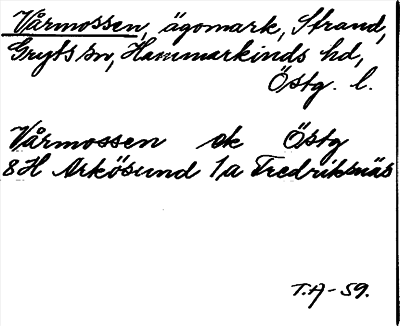 Vårmossen, ägomark, Strand,
Gryts sn, Hammarkinds hd,
Östg. l.
Vårmossen ek Östg
8H Arkösund 1a Fredriksnäs
T.A-59.